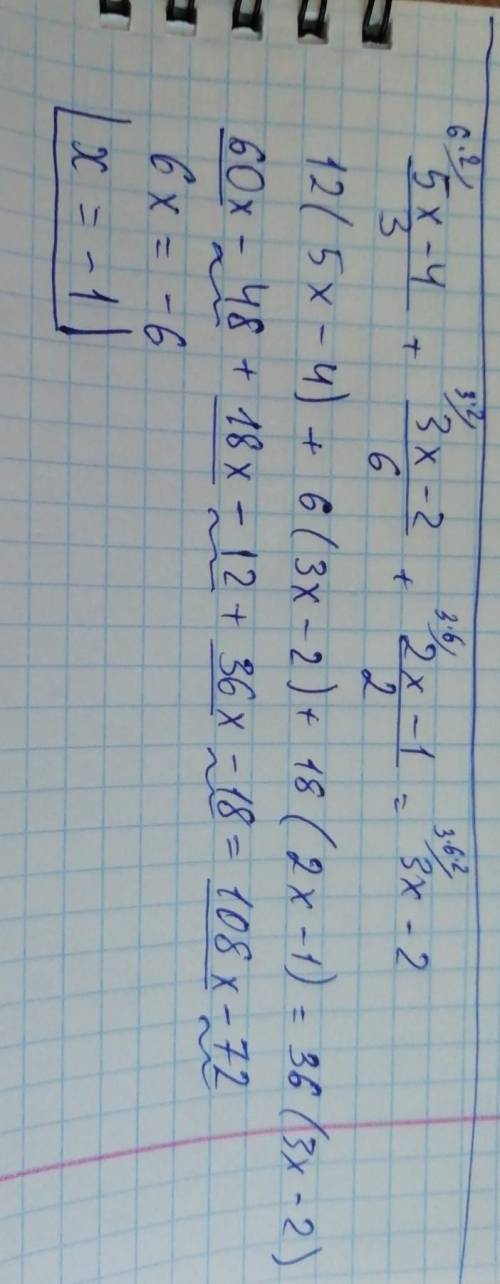 6·2/ 3·2/ 3·6/ 3·6·2/
5x-4/3 + 3x-2/6 + 2x-1/2 = 3x-2
12(5x-4) + 6(3x-2) + 18(2x-1) = 36(3x-2)
60x - 48 + 18x - 12 + 36x - 18 = 108x - 72
6x = -6
x = -1